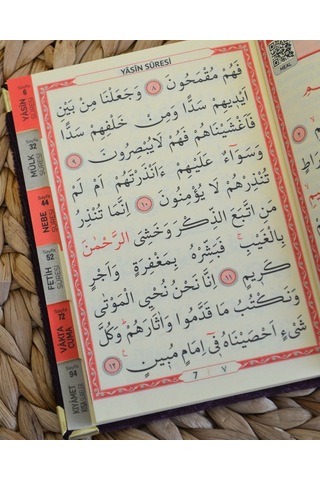 YÂSİN SÛRESİ
MEAL
فَهُمْ مُقْمَحُونَ ﴿٨﴾ وَجَعَلْنَا مِنْ بَيْنِ
اَيْدٖيهِمْ سَدًّا وَمِنْ خَلْفِهِمْ سَدًّا
فَاَغْشَيْنَاهُمْ فَهُمْ لَا يُبْصِرُونَ ﴿٩﴾
وَسَوَٓاءٌ عَلَيْهِمْ ءَاَنْذَرْتَهُمْ اَمْ لَمْ
تُنْذِرْهُمْ لَا يُؤْمِنُونَ ﴿١٠﴾ اِنَّمَا تُنْذِرُ
مَنِ اتَّبَعَ الذِّكْرَ وَخَشِيَ الرَّحْمٰنَ
بِالْغَيْبِۚ فَبَشِّرْهُ بِمَغْفِرَةٍ وَاَجْرٍ
كَرٖيمٍ ﴿١١﴾ اِنَّا نَحْنُ نُحْيِ الْمَوْتٰى
وَنَكْتُبُ مَا قَدَّمُوا وَاٰثَارَهُمْ وَكُلَّ
شَيْءٍ اَحْصَيْنَاهُ فٖٓي اِمَامٍ مُبٖينٍ ﴿١٢﴾
7 ٧
Sayfa 6
YÂSİN SÛRESİ
Sayfa 32
MÜLK SÛRESİ
Sayfa 44
NEBE SÛRESİ
Sayfa 52
FETİH SÛRESİ
Sayfa 72
VÂKIA CUMA
Sayfa 94
KIYÂMET